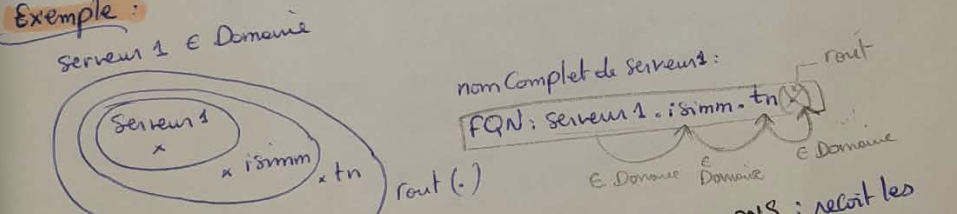 Exemple :
Serveur 1 ∈ Domaine
Serveur 1
× isimm
. × tn
rout (.)
nom Complet de serveur 1 :
rout
FQN : serveur 1 . isimm . tn (.)
∈ Domaine
∈ Domaine
∈ Domaine
: reçoit les